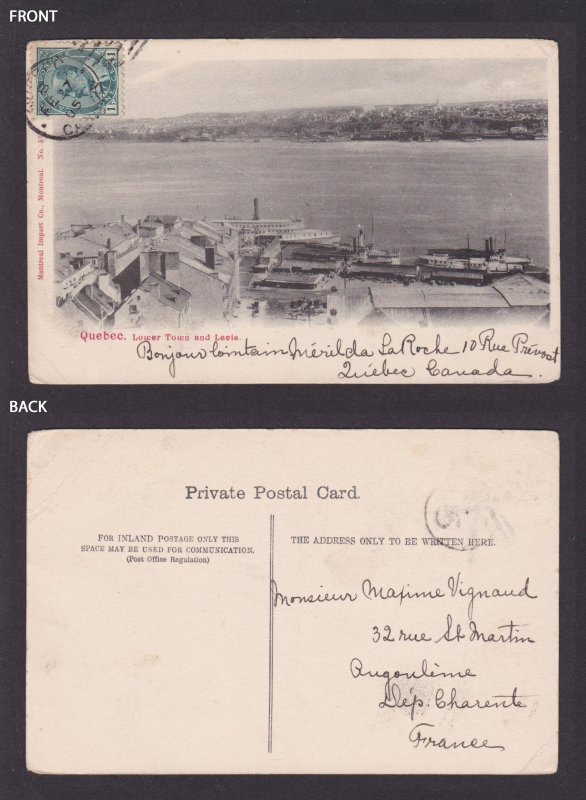 FRONT
1
1
Montreal Import Co., Montreal. No.
Quebec. Lower Town and Levis.
Bonjour lointain Mérilda LaRoche 10 Rue Prévost
Québec Canada.
BACK
Private Postal Card.
FOR INLAND POSTAGE ONLY THIS
SPACE MAY BE USED FOR COMMUNICATION.
(Post Office Regulation)
THE ADDRESS ONLY TO BE WRITTEN HERE.
Monsieur Maxime Vignaud
32 rue St Martin
Angoulême
Dép. Charente
France